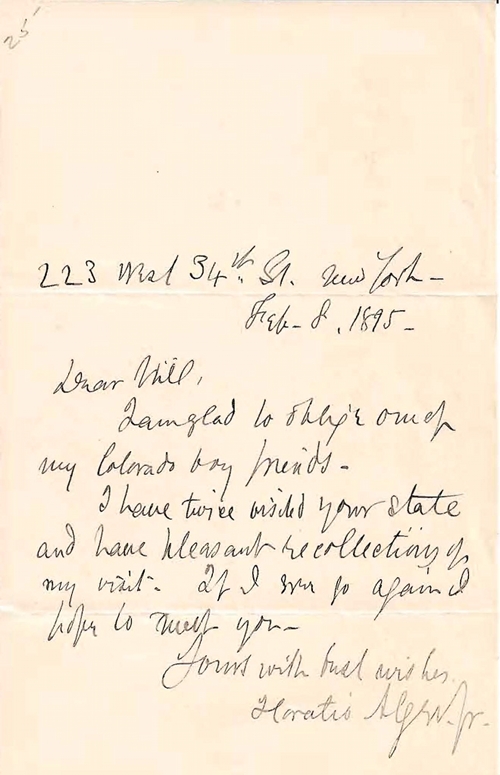 25
223 West 34th St. New York -
Feb - 8, 1895 -
Dear Will,
I am glad to oblige one of
my Colorado boy friends -
I have twice visited your state
and have pleasant recollections of
my visit - If I ever go again I
hope to meet you -
Yours with best wishes
Horatio Alger Jr.